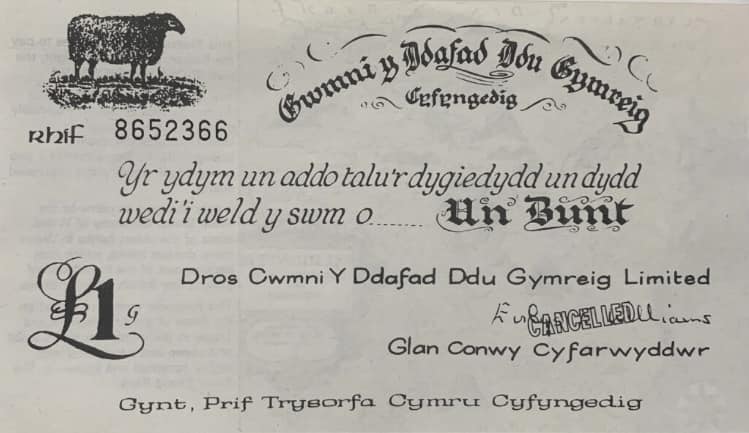 Cwmni y Ddafad Ddu Gymreig
Cyfyngedig
Rhif 8652366
Yr ydym un addo talu'r dygiedydd un dydd
wedi'i weld y swm o........ Un Bunt
£1 G
Dros Cwmni Y Ddafad Ddu Gymreig Limited
CANCELLED
Glan Conwy Cyfarwyddwr
Gynt, Prif Trysorfa Cymru Cyfyngedig